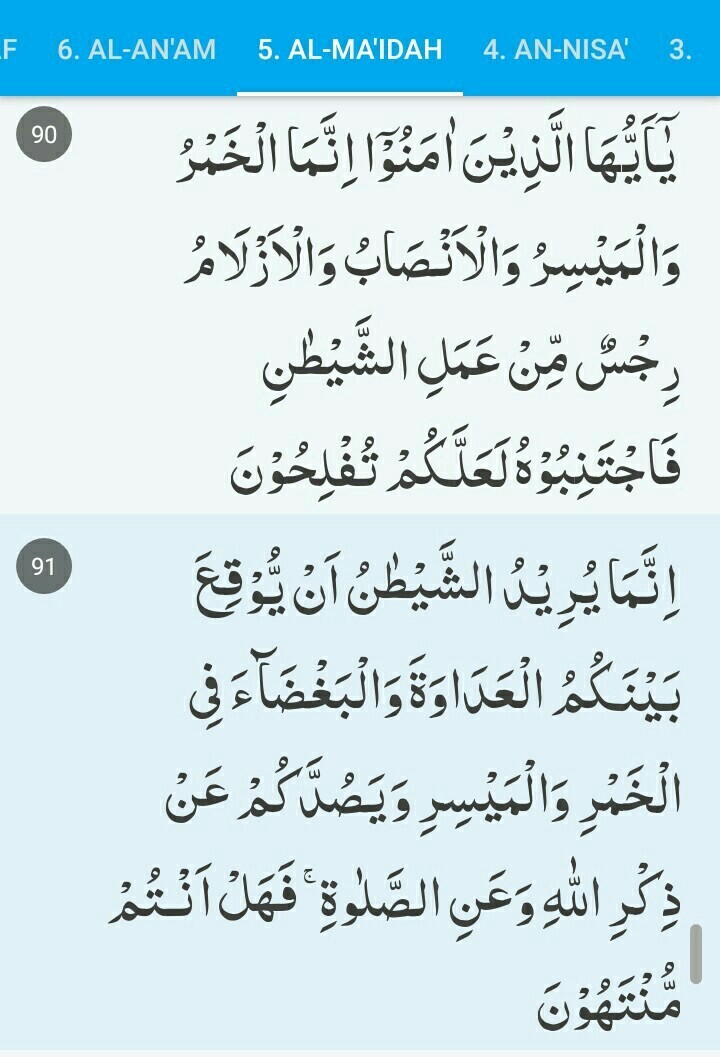 F 6. AL-AN'AM 5. AL-MA'IDAH 4. AN-NISA' 3.
90
يٰٓاَيُّهَا الَّذِيْنَ اٰمَنُوْٓا اِنَّمَا الْخَمْرُ
وَالْمَيْسِرُ وَالْاَنْصَابُ وَالْاَزْلَامُ
رِجْسٌ مِّنْ عَمَلِ الشَّيْطٰنِ
فَاجْتَنِبُوْهُ لَعَلَّكُمْ تُفْلِحُوْنَ
91
اِنَّمَا يُرِيْدُ الشَّيْطٰنُ اَنْ يُّوْقِعَ
بَيْنَكُمُ الْعَدَاوَةَ وَالْبَغْضَاۤءَ فِى
الْخَمْرِ وَالْمَيْسِرِ وَيَصُدَّكُمْ عَنْ
ذِكْرِ اللّٰهِ وَعَنِ الصَّلٰوةِ ۚ فَهَلْ اَنْتُمْ
مُّنْتَهُوْنَ